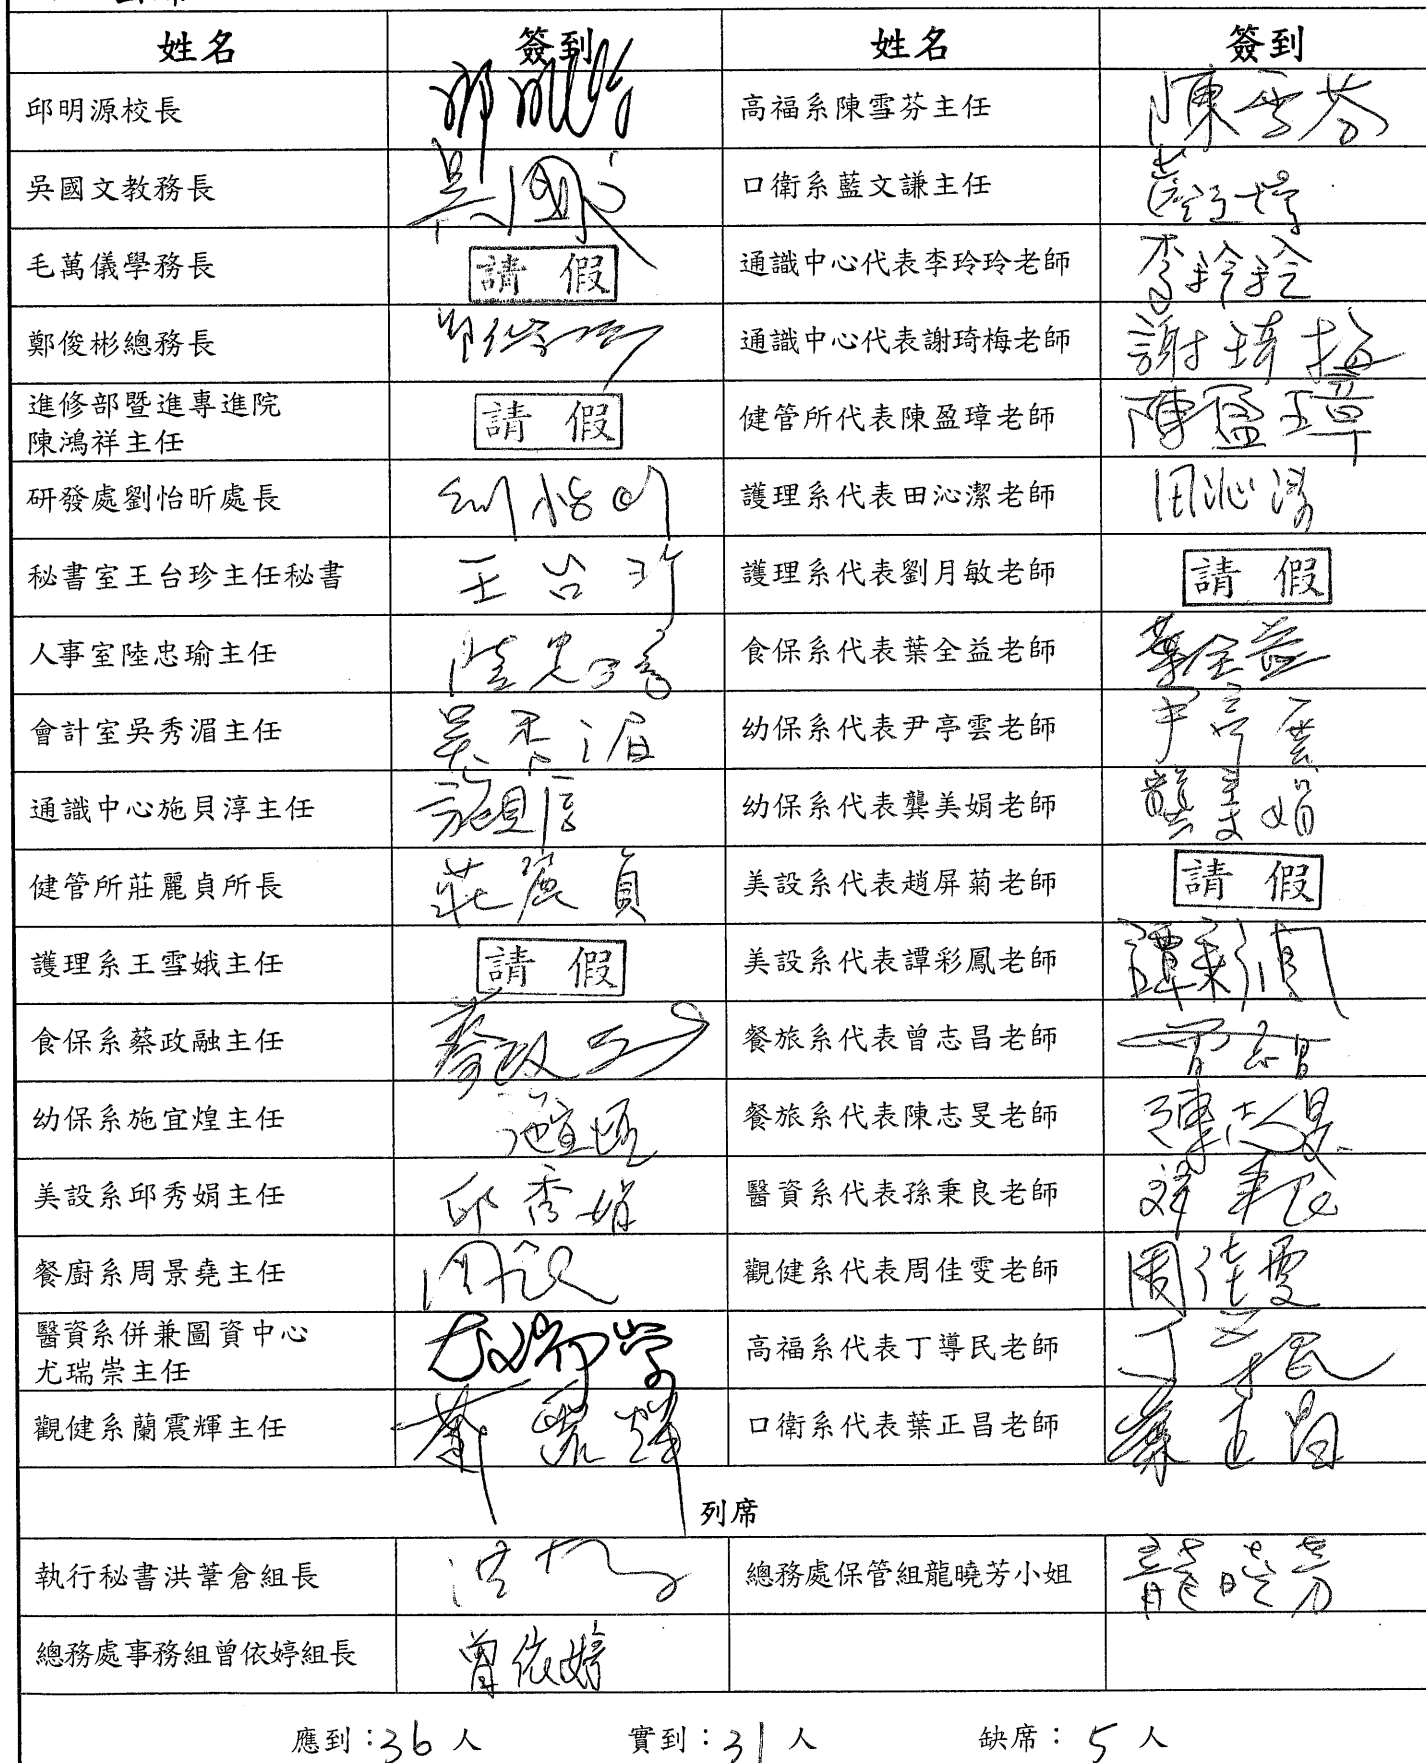 姓名 簽到 姓名 簽到
邱明源校長 高福系陳雪芬主任 陳雪芬
吳國文教務長 吳國文 口衛系藍文謙主任
毛萬儀學務長 請假 通識中心代表李玲玲老師 李玲玲
鄭俊彬總務長 通識中心代表謝琦梅老師 謝琦梅
進修部暨進專進院
陳鴻祥主任 請假 健管所代表陳盈璋老師 陳盈璋
研發處劉怡昕處長 刘怡昕 護理系代表田沁潔老師 田沁潔
秘書室王台珍主任秘書 王台珍 護理系代表劉月敏老師 請假
人事室陸忠瑜主任 陸忠瑜 食保系代表葉全益老師 葉全益
會計室吳秀湄主任 吳秀湄 幼保系代表尹亭雲老師 尹亭雲
通識中心施貝淳主任 施貝淳 幼保系代表龔美娟老師 龔美娟
健管所莊麗貞所長 莊麗貞 美設系代表趙屏菊老師 請假
護理系王雪娥主任 請假 美設系代表譚彩鳳老師 譚彩鳳
食保系蔡政融主任 餐旅系代表曾志昌老師 曾志昌
幼保系施宜煌主任 施宜煌 餐旅系代表陳志旻老師 陳志旻
美設系邱秀娟主任 邱秀娟 醫資系代表孫秉良老師
餐廚系周景堯主任 觀健系代表周佳雯老師 周佳雯
醫資系併兼圖資中心
尤瑞崇主任 尤瑞崇 高福系代表丁導民老師
觀健系蘭震輝主任 蘭震輝 口衛系代表葉正昌老師 葉正昌
列席
執行秘書洪葦倉組長 總務處保管組龍曉芳小姐 龍曉芳
總務處事務組曾依婷組長 曾依婷
應到：36人 實到：31人 缺席：5人